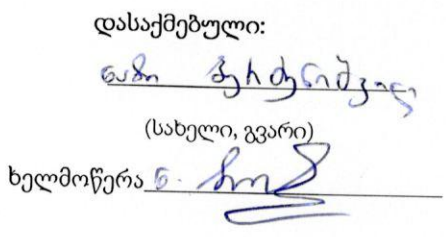 დასაქმებული:
ნაზი
(სახელი, გვარი)
ხელმოწერა ნ.